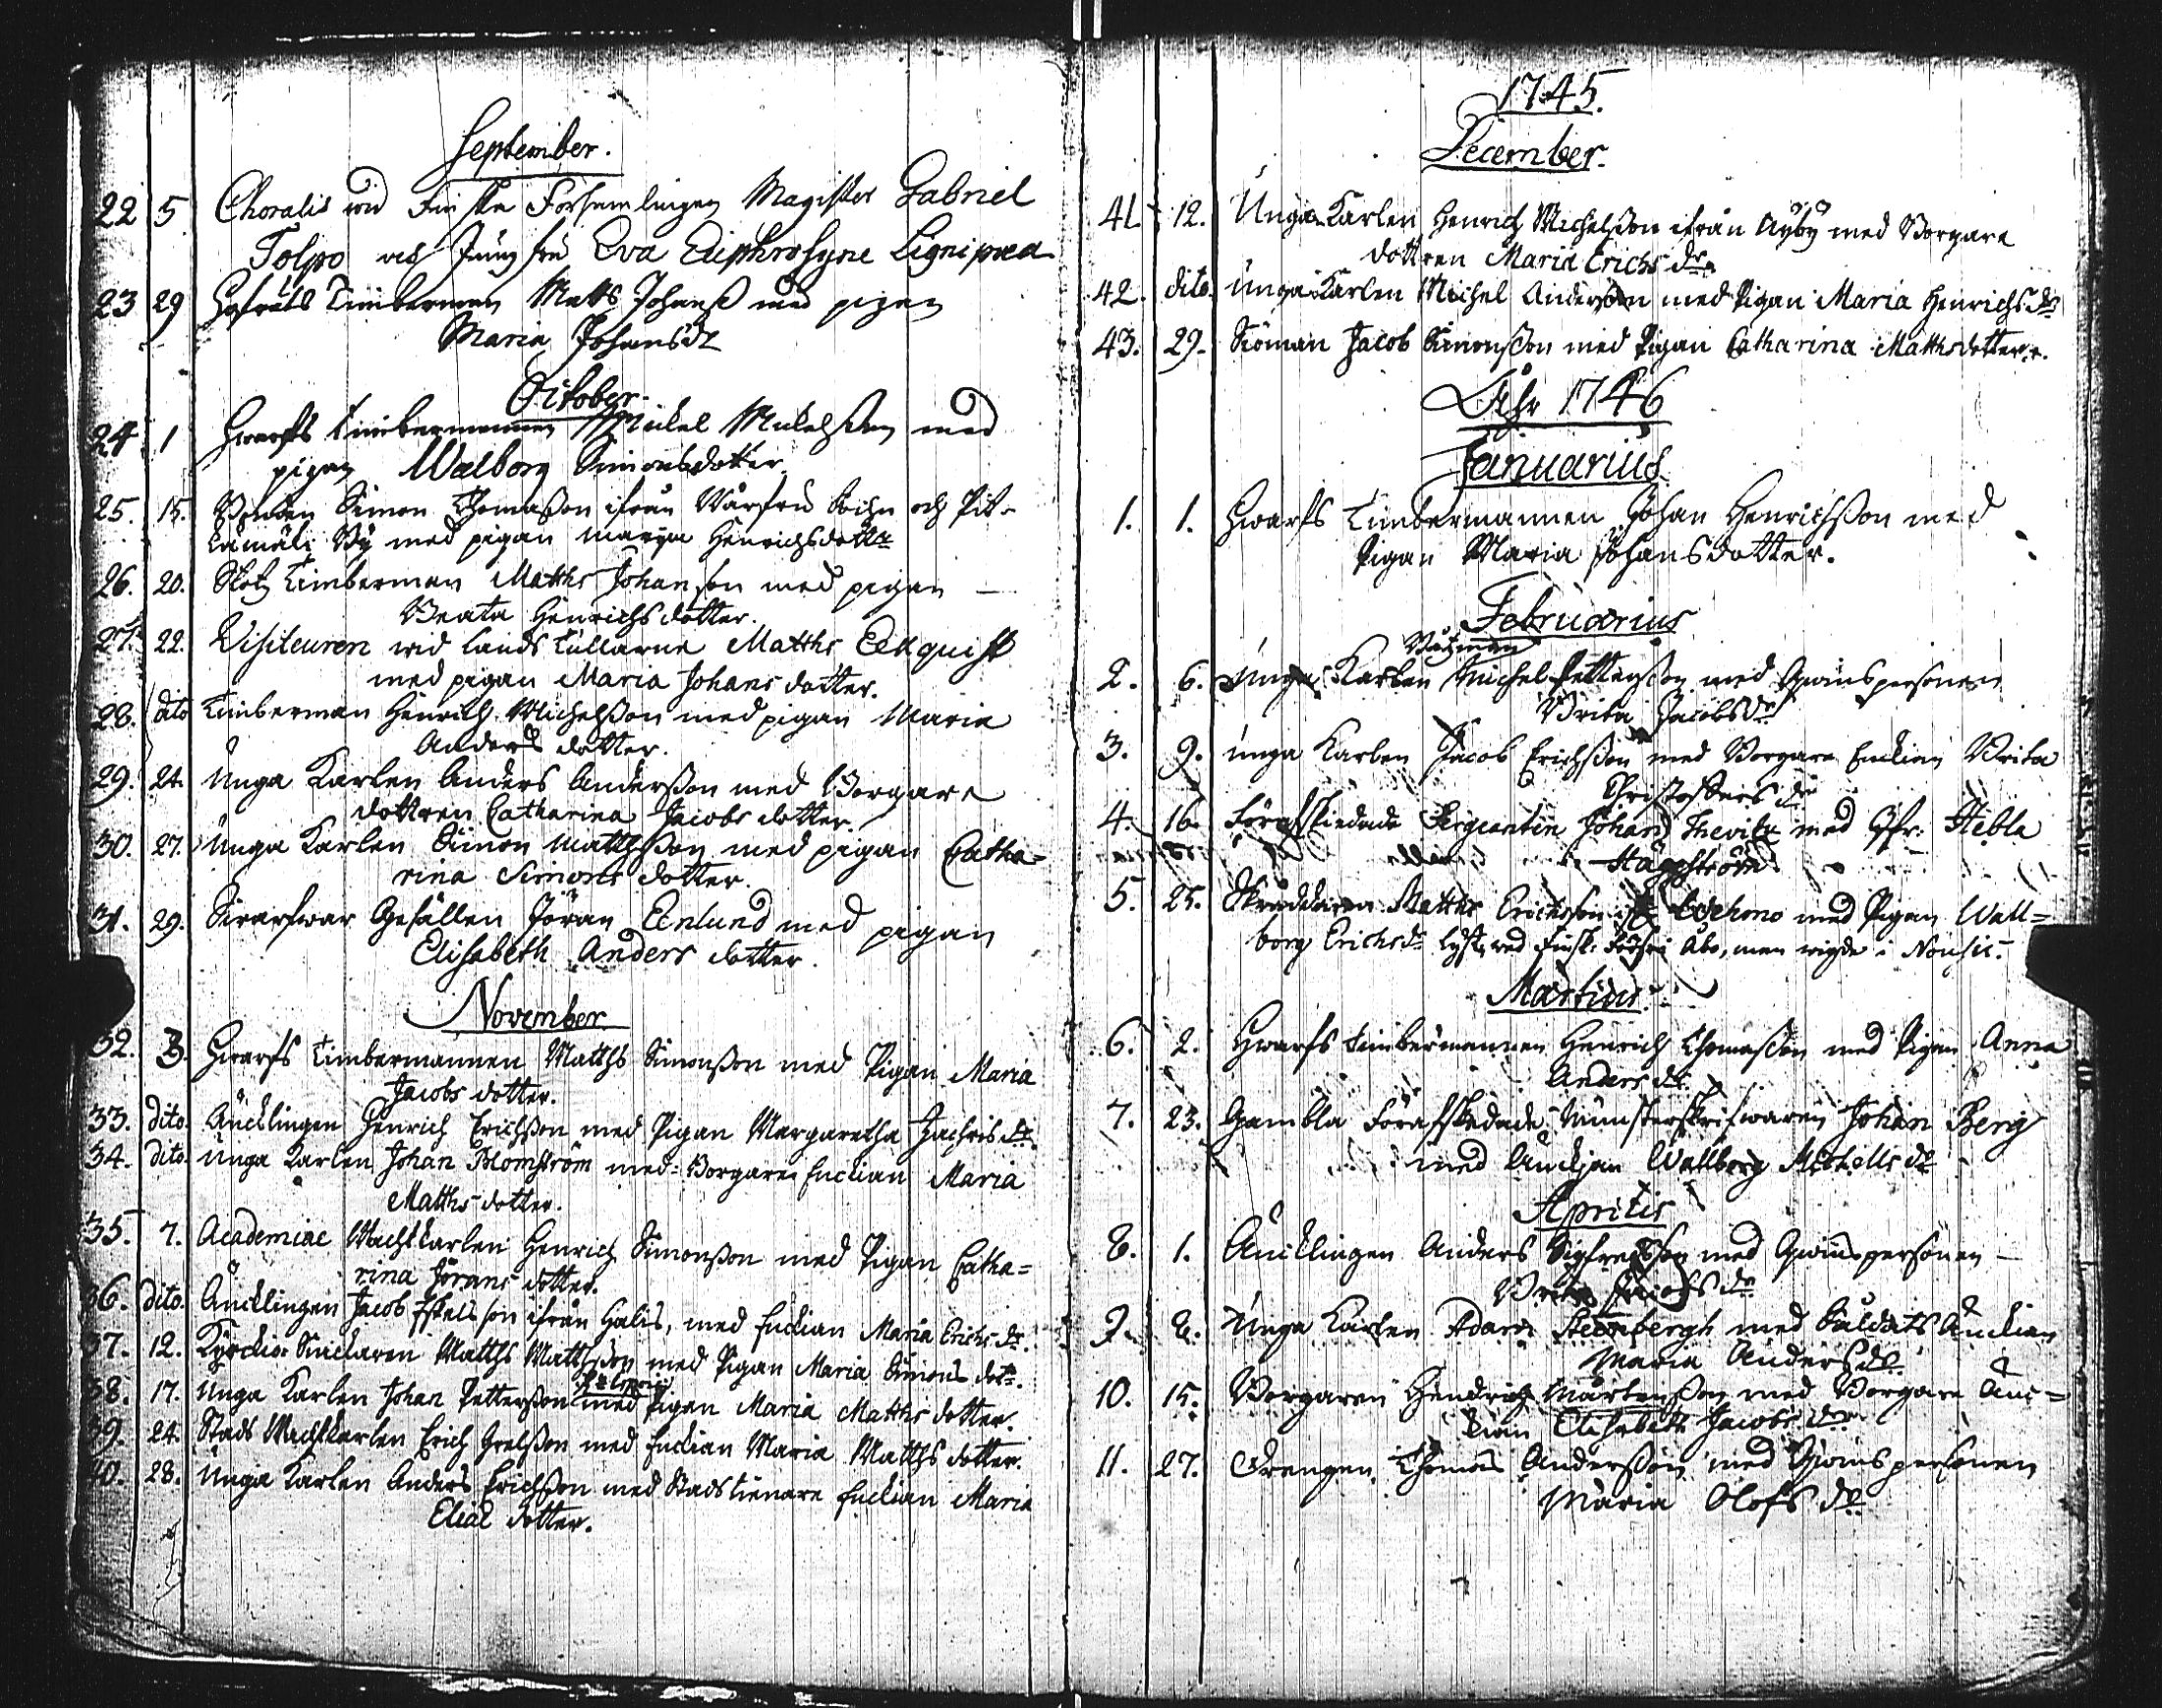 September.
22 5 Choralis wid Finska Forsamlingen Magister Gabriel
Tolpo och Jungfru Eva Euphrosyne Lignipæa
23 29 Timberman Matts Johanss med pigan
Maria Johansdr
October.
24 1 Hwarfs Timbermannen Mickel Mickelsson med
pigan Walborg Simonsdotter
25. 15. Bonden Simon Thomasson ifrån Wårfru Sochn och Pit-
kämäki By med pigan Marja Henrichsdotter
26. 20. Timberman Matths Johansson med pigan —
Beata Henrichsdotter.
27. 22. Visiteuren wid Lands Tullarne Matths Eekquist
med pigan Maria Johans dotter.
28. dito Timberman Henrich Michelsson med pigan Maria
Anders dotter.
29. 24. Unga Karlen Anders Andersson med Borgare
dottren Catharina Jacobs dotter.
30. 27. Unga Karlen Simon Matthsson med pigan Catha=
rina Simons dotter.
31. 29. Gesällen Jöran Enlund med pigan
Elisabeth Anders dotter.
November
32. 3. Hwarfs Timbermannen Matths Simonsson med Pigan Maria
Jacobs dotter.
33. dito. Äncklingen Henrich Erichsson med Pigan Margaretha Zachris dr.
34. dito. Unga Karlen Johan Blomström med Borgare Enckian Maria
Matths dotter.
35. 7. Academiae Wachtkarlen Henrich Simonsson med Pigan Catha=
rina Jörans dotter.
36. dito. Äncklingen Jacob Eskelsson ifrån Halis, med Enckian Maria Erichs dr.
37. 12. Kyrckio Snickaren Matths Matthsson med Pigan Maria Simons dotr.
38. 17. Unga Karlen Johan Pettersson med Pigan Maria Matths dotter.
39. 24. Stads Wachtkarlen Erich Grelsson med Enckian Maria Matths dotter.
40. 28. Unga Karlen Anders Erichsson med Stadstienare Enckian Maria
Eliæ dotter.
1745.
December.
41. 12. Unga Karlen Henrich Michelsson ifrån Ayby med Borgare
dottren Maria Erichs dr.
42. dito. Unga Karlen Michel Andersson med Pigan Maria Henrichs dr
43. 29. Siöman Jacob Simonsson med Pigan Catharina Matthsdotter.
Åhr 1746
Januarius
1. 1. Hwarfs Timbermannen Johan Henrichsson med
Pigan Maria Johansdotter.
Februarius
Båtzman
2. 6. Unga Karlen Michel Pettersson med Qwinspersonen
Brita Jacobsdr
3. 9. Unga Karlen Jacob Erichsson med Borgare Enckian Brita
Christoffers dr
4. 16. Förafskiedade Sergeanten Johan Thevitz med Jfr: Hebla
Häggström.
5. 25. Skräddaren Matths Erichsson med Pigan Wall=
borg Erichs dr Lyste wid Finsk: Förs: i Åbo, men wigde i Nousis.
Martius.
6. 2. Hwarfs Timbermannen Henrich Thomasson med Pigan Anna
Anders dr.
7. 23. Gambla Förafskedade Munsterskrifwaren Johan Berg
med Änckjan Wallborg Michells dr
Aprilis
8. 1. Änicklingen Anders Sigfredsson med Qwinspersonen —
Brita Jacobs dr
9. 8. Unga Karlen Adam Steenbergh med Saldats Änckian
Maria Anders dr
10. 15. Borgaren Hendrich Mårtensson med Borgare Änc=
kian Elisabeth Jacobs dr
11. 27. Drengen Thomas Andersson med Qwinspersonen
Maria Olofs dr